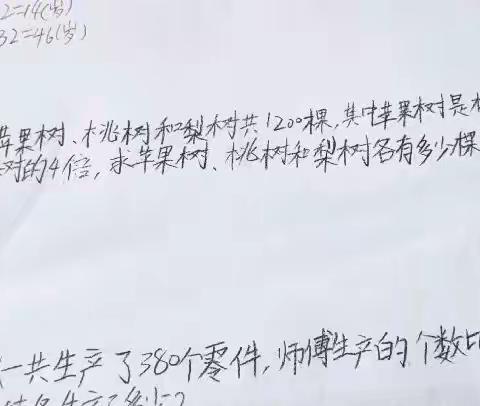 2=14(岁)
32=46(岁)
苹果树、桃树和梨树共1200棵,其中苹果树是
树的4倍,求苹果树、桃树和梨树各有多少棵
一共生产了380个零件,师傅生产的个数比
生产了多少?